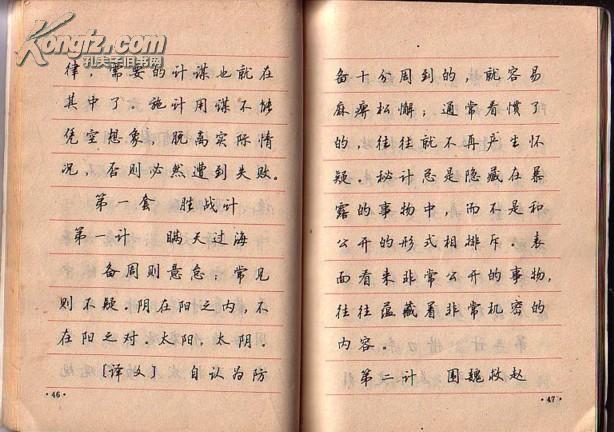 Kongfz.com
孔夫子旧书网
律，需要的计谋也就在
其中了．施计用谋不能
凭空想象，脱离实际情
况，否则必然遭到失败．
第一套　胜战计
第一计　瞒天过海
备周则意怠；常见
则不疑．阴在阳之内，不
在阳之对．太阳，太阴
［译文］　自认为防
·46·
备十分周到的，就容易
麻痹松懈；通常看惯了
的，往往就不再产生怀
疑．秘计总是隐藏在暴
露的事物中，而不是和
公开的形式相排斥．表
面看来非常公开的事物，
往往蕴藏着非常机密的
内容．
第二计　围魏救赵
·47·